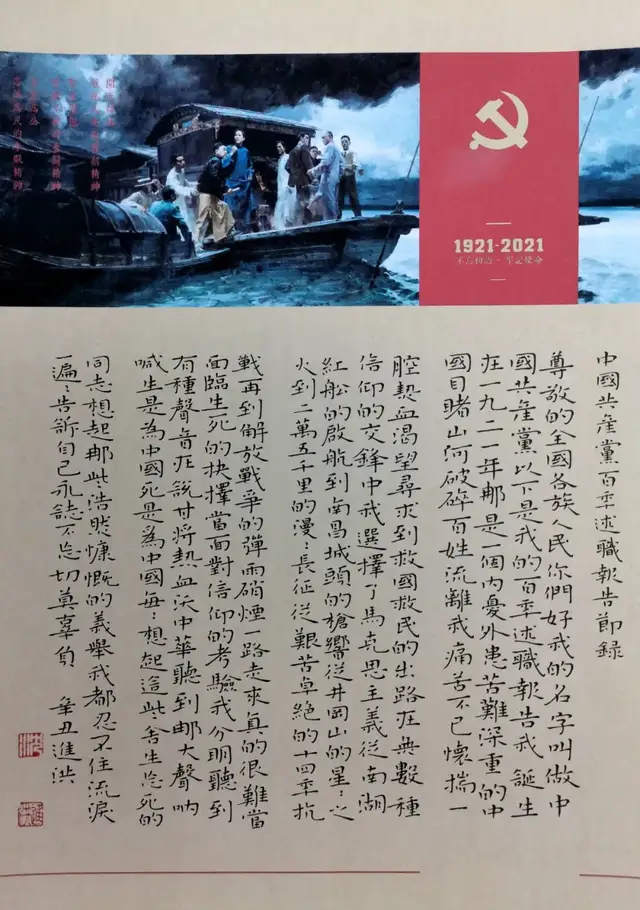 1921-2021
不忘初心·牢記使命
中國共產黨百年述職報告節錄
尊敬的全國各族人民你們好我的名字叫做中
國共產黨以下是我的百年述職報告我誕生
在一九二一年那是一個內憂外患苦難深重的中
國目睹山河破碎百姓流離我痛苦不已懷揣一
腔熱血渴望尋求到救國救民的出路在無數種
信仰的交鋒中我選擇了馬克思主義從南湖
紅船的啟航到南昌城頭的槍響從井岡山的星:之
火到二萬五千里的漫:長征從艱苦卓絕的十四年抗
戰再到解放戰爭的彈雨硝煙一路走來真的很難當
面臨生死的抉擇當面對信仰的考驗我分明聽到
有種聲音在說甘將熱血沃中華聽到那大聲吶
喊生是為中國死是為中國每:想起這些舍生忘死的
同志想起那些浩然慷慨的義舉我都忍不住流淚
一遍:告訴自己永誌不忘切莫辜負 辛丑進洪